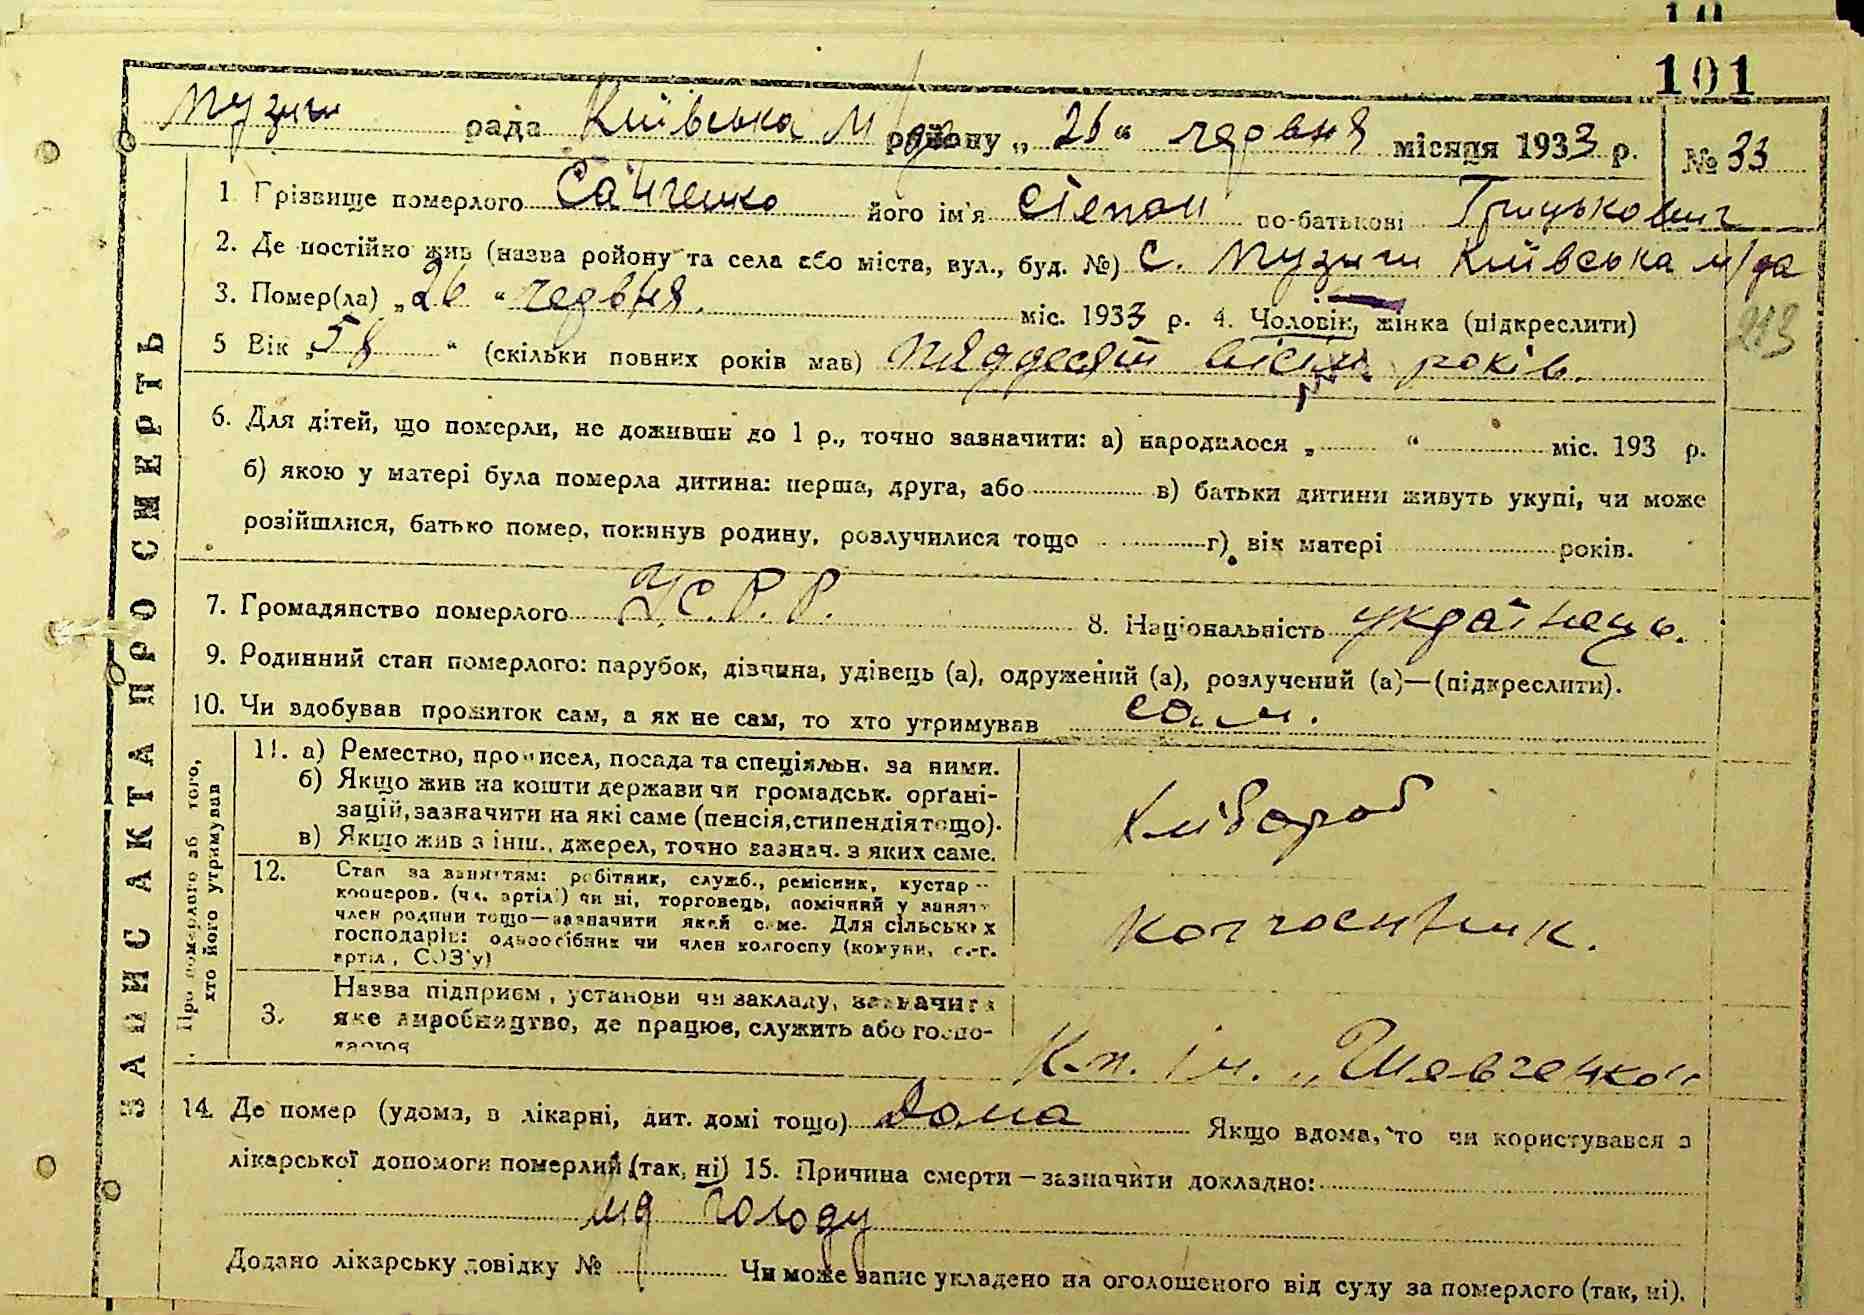 101
Музичи рада Київська м/р району „ 26 “ червня місяця 1933 р. № 33
ЗАПИС АКТА ПРО СМЕРТЬ
1. Прізвище померлого Сайченко його ім'я Степан по-батькові Грицькович
2. Де постійно жив (назва району та села або міста, вул., буд. №) С. Музичи Київська м/ра
3. Помер(ла) „ 26 “ червня міс. 1933 р. 4. Чоловік, жінка (підкреслити)
213
5 Вік „ 58 “ (скільки повних років мав) пяддесят вісім років.
6. Для дітей, що померли, не доживши до 1 р., точно зазначити: а) народилося „ “ міс. 193 р.
б) якою у матері була померла дитина: перша, друга, або в) батьки дитини живуть укупі, чи може
розійшлися, батько помер, покинув родину, розлучилися тощо г) вік матері років.
7. Громадянство померлого У.С.Р.Р. 8. Національність українець.
9. Родинний стан померлого: парубок, дівчина, удівець (а), одружений (а), розлучений (а)—(підкреслити).
10. Чи здобував прожиток сам, а як не сам, то хто утримував сам.
Про померлого аб того,
хто його утримував
11. а) Ремество, промисел, посада та спеціяльн. за ними.
б) Якщо жив на кошти держави чи громадськ. орґані-
зацій, зазначити на які саме (пенсія, стипендія тощо).
в) Якщо жив з інш., джерел, точно зазнач. з яких саме.
Хлібороб
12. Стан за заняттям: робітник, служб., ремісник, кустар
кооперов. (чл. артілі) чи ні, торговець, помічний у занят
член родини тощо—зазначити який саме. Для сільських
господарів: одноосібник чи член колгоспу (комуни, с.-г.
артіл, СОЗ'у)
колгоспник.
3. Назва підприєм, установи чи закладу, зазначити
яке виробництво, де працює, служить або госпо-
дарює
К.п. ім. „Шевченко"
14. Де помер (удома, в лікарні, дит. домі тощо) дома Якщо вдома, то чи користувався з
лікарської допомоги померлий (так, ні) 15. Причина смерти — зазначити докладно:
від голоду
Додано лікарську довідку № Чи може запис укладено на оголошеного від суду за померлого (так, ні).